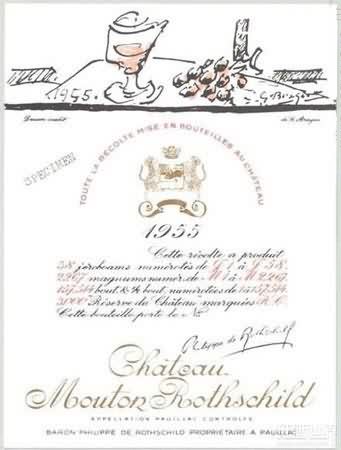 1955.
G. Braque
Dessin inédit
de G. Braque
SPECIMEN
TOUTE LA RÉCOLTE MISE EN BOUTEILLES AU CHÂTEAU
1955
Cette récolte a produit
58 jéroboams numérotés de
magnums numér. de
bout. & ½ bout. numérotées de
3000 Réserve du Château marquées R.C.
Cette bouteille porte le No
Philippe de Rothschild
Château
Mouton Rothschild
APPELLATION PAUILLAC CONTROLÉE
BARON PHILIPPE DE ROTHSCHILD PROPRIÉTAIRE A PAUILLAC